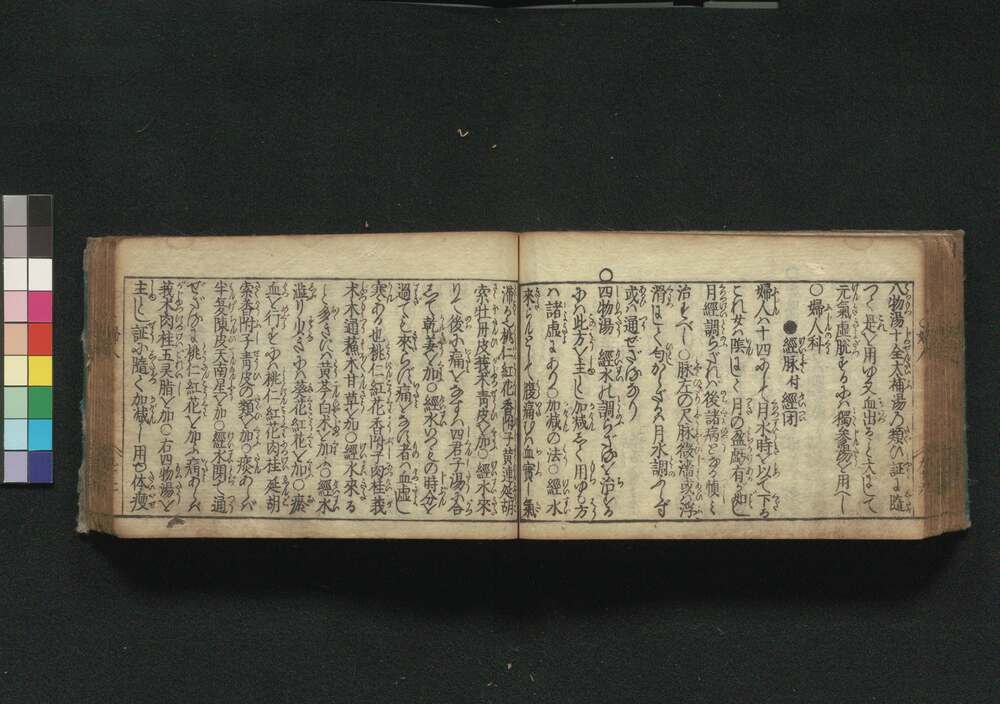 八物湯十全大補湯の類ひ証に隨
つて是を用ゆ又血出ること大にして
元氣虛脱するには獨參湯を用べし
○婦人科
●經脉付經閉
婦人八十四にして月水時を以て下る
これ女ハ陰にして月の盈虧有如し
月經調らざれハ後諸病となる慎して
治すべし○脉左の尺脉微濇或ハ浮
滑にして匀からざるハ月水調ハず
或ハ通ぜざるなり
○四物湯 經水不調らざるを治する
にハ此方を主とし加減して用ゆる方
ハ諸虛にあり○加減の法○經水
來らんとして腹痛むハ血實し氣
滞る也桃仁紅花香附子黄連延胡
索牡丹皮莪朮青皮を加○經水來
りて後に痛をなすハ四君子湯に合
して乾姜を加○經水いつもの時分を
過ても來らず痛をなす者ハ血虛し
寒ある也桃仁紅花香附子肉桂莪
朮木通蘓木甘草を加○經水來る
こと多きにハ黄芩白朮を加ふ○經水
澁り少きにハ葵花紅花を加○瘀
血を行らすにハ桃仁紅花肉桂延胡
索香附子青皮の類を加○痰あらバ
半夏陳皮天南星を加○經水閉て通
ぜざるには桃仁紅花を加ふ痛あらバ
莪朮肉桂五灵脂を加○右四物湯を
主として証に隨て加減して用ゆ体瘦